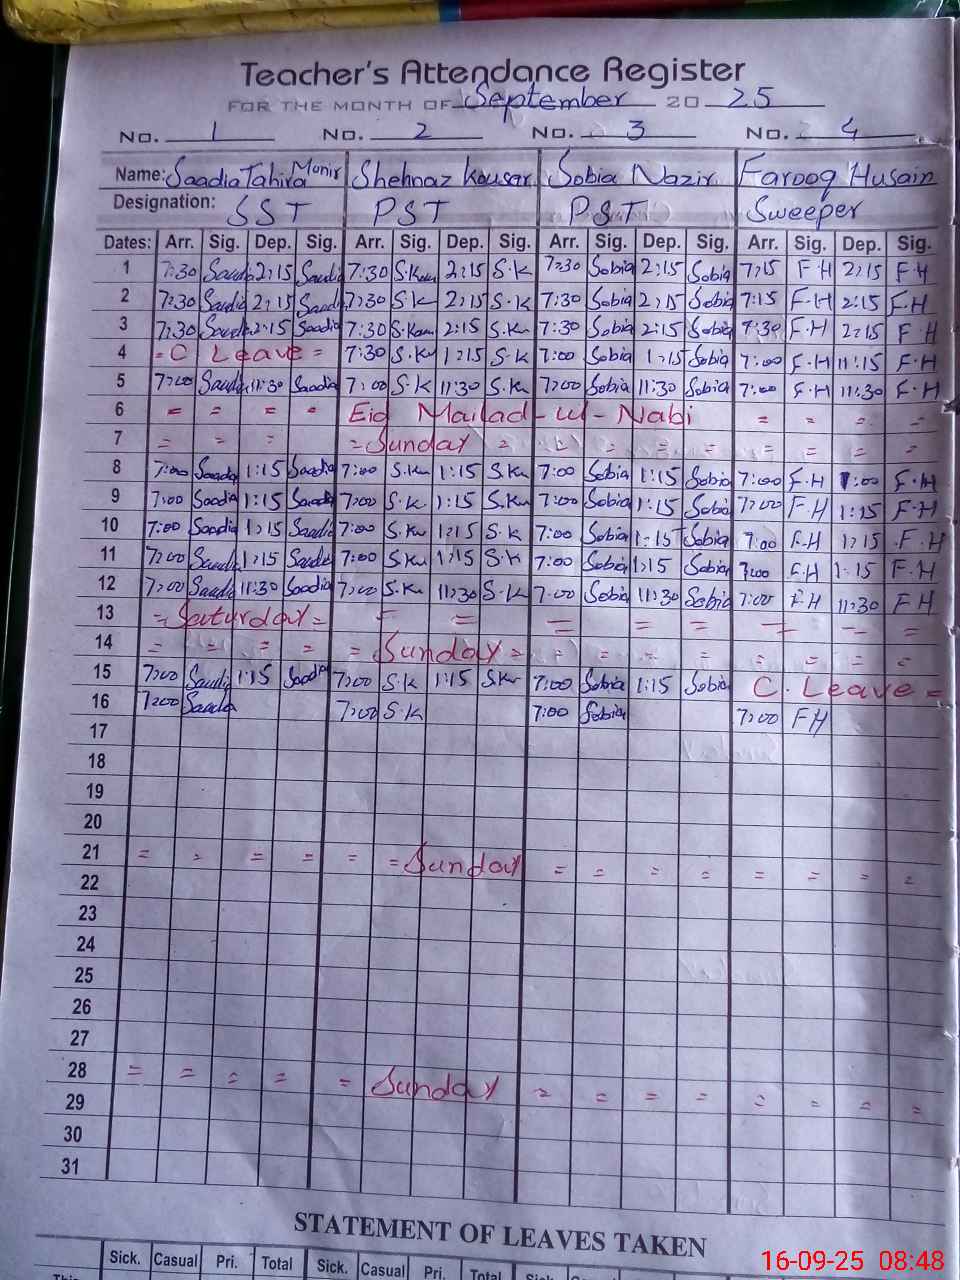 Teacher's Attendance Register
FOR THE MONTH OF September 20 25
No. 1 No. 2 No. 3 No. 4
Name: Saadia Tahira Munir Shehnaz Kousar Sobia Nazir Farooq Husain
Designation: SST PST PST Sweeper
Dates: Arr. Sig. Dep. Sig. Arr. Sig. Dep. Sig. Arr. Sig. Dep. Sig. Arr. Sig. Dep. Sig.
1 7:30 Saadia 2:15 Saadia 7:30 S.Kou 2:15 S.K 7:30 Sobia 2:15 Sobia 7:15 F H 2:15 F H
2 7:30 Saadia 2:15 Saadia 7:30 S.K 2:15 S.K 7:30 Sobia 2:15 Sobia 7:15 F.H 2:15 F.H
3 7:30 Saadia 2:15 Saadia 7:30 S.Kou 2:15 S.Ku 7:30 Sobia 2:15 Sobia 7:30 F.H 2:15 F H
4 = C Leave = 7:30 S.Ku 1:15 S.K 7:00 Sobia 1:15 Sobia 7:00 F.H 11:15 F.H
5 7:00 Saadia 11:30 Saadia 7:00 S.K 11:30 S.Ku 7:00 Sobia 11:30 Sobia 7:00 F.H 11:30 F.H
6 = = = = Eid Mailad-ul-Nabi = = = =
7 = = = = Sunday = = = = = = = =
8 7:00 Saadia 1:15 Saadia 7:00 S.Ku 1:15 S.Ku 7:00 Sobia 1:15 Sobia 7:00 F.H 1:00 F.H
9 7:00 Saadia 1:15 Saadia 7:00 S.K 1:15 S.Ku 7:00 Sobia 1:15 Sobia 7:00 F.H 1:15 F.H
10 7:00 Saadia 1:15 Saadia 7:00 S.Ku 1:15 S.K 7:00 Sobia 1:15 Sobia 7:00 F.H 1:15 F.H
11 7:00 Saadia 1:15 Saadia 7:00 S.Ku 1:15 S.K 7:00 Sobia 1:15 Sobia 7:00 F.H 1:15 F.H
12 7:00 Saadia 11:30 Saadia 7:00 S.Ku 11:30 S.K 7:00 Sobia 11:30 Sobia 7:00 F.H 11:30 F H
13 = Saturday = = = = = = = = =
14 = = = = = Sunday = = = = = = = =
15 7:00 Saadia 1:15 Saadia 7:00 S.K 1:15 S.Ku 7:00 Sobia 1:15 Sobia C. Leave =
16 7:00 Saadia 7:00 S.K 7:00 Sobia 7:00 FH
17
18
19
20
21 = = = = = = Sunday = = = = = = = =
22
23
24
25
26
27
28 = = = = = Sunday = = = = = = = =
29
30
31
STATEMENT OF LEAVES TAKEN
Sick. Casual Pri. Total Sick. Casual Pri. Total Sick.
This
16-09-25 08:48